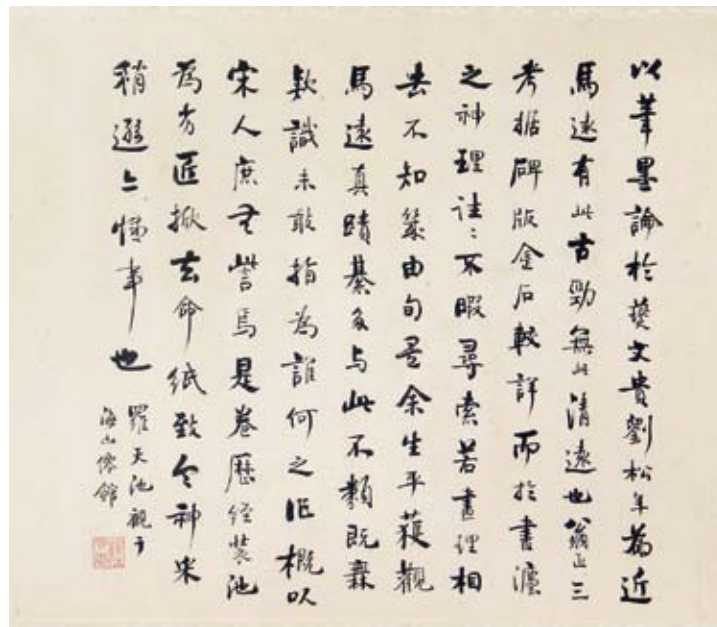 以筆墨論於燕文貴劉松年為近
馬遠有此古勁無此清遠也翁正三
考据碑版金石較詳而於書源
之神理往〻不暇尋索若畫理相
去不知幾由旬是余生平獲觀
馬遠真蹟綦多与此不類既無
款識未敢指為誰何之作概以
宋人庶無訾焉是卷歷經裝池
為方匠掀去命紙致令神采
稍遜亦憾事也
羅天池觀于
海山僊館